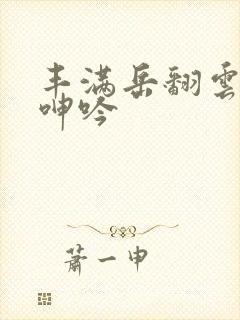 丰满岳翻雲
呻吟
萧一申